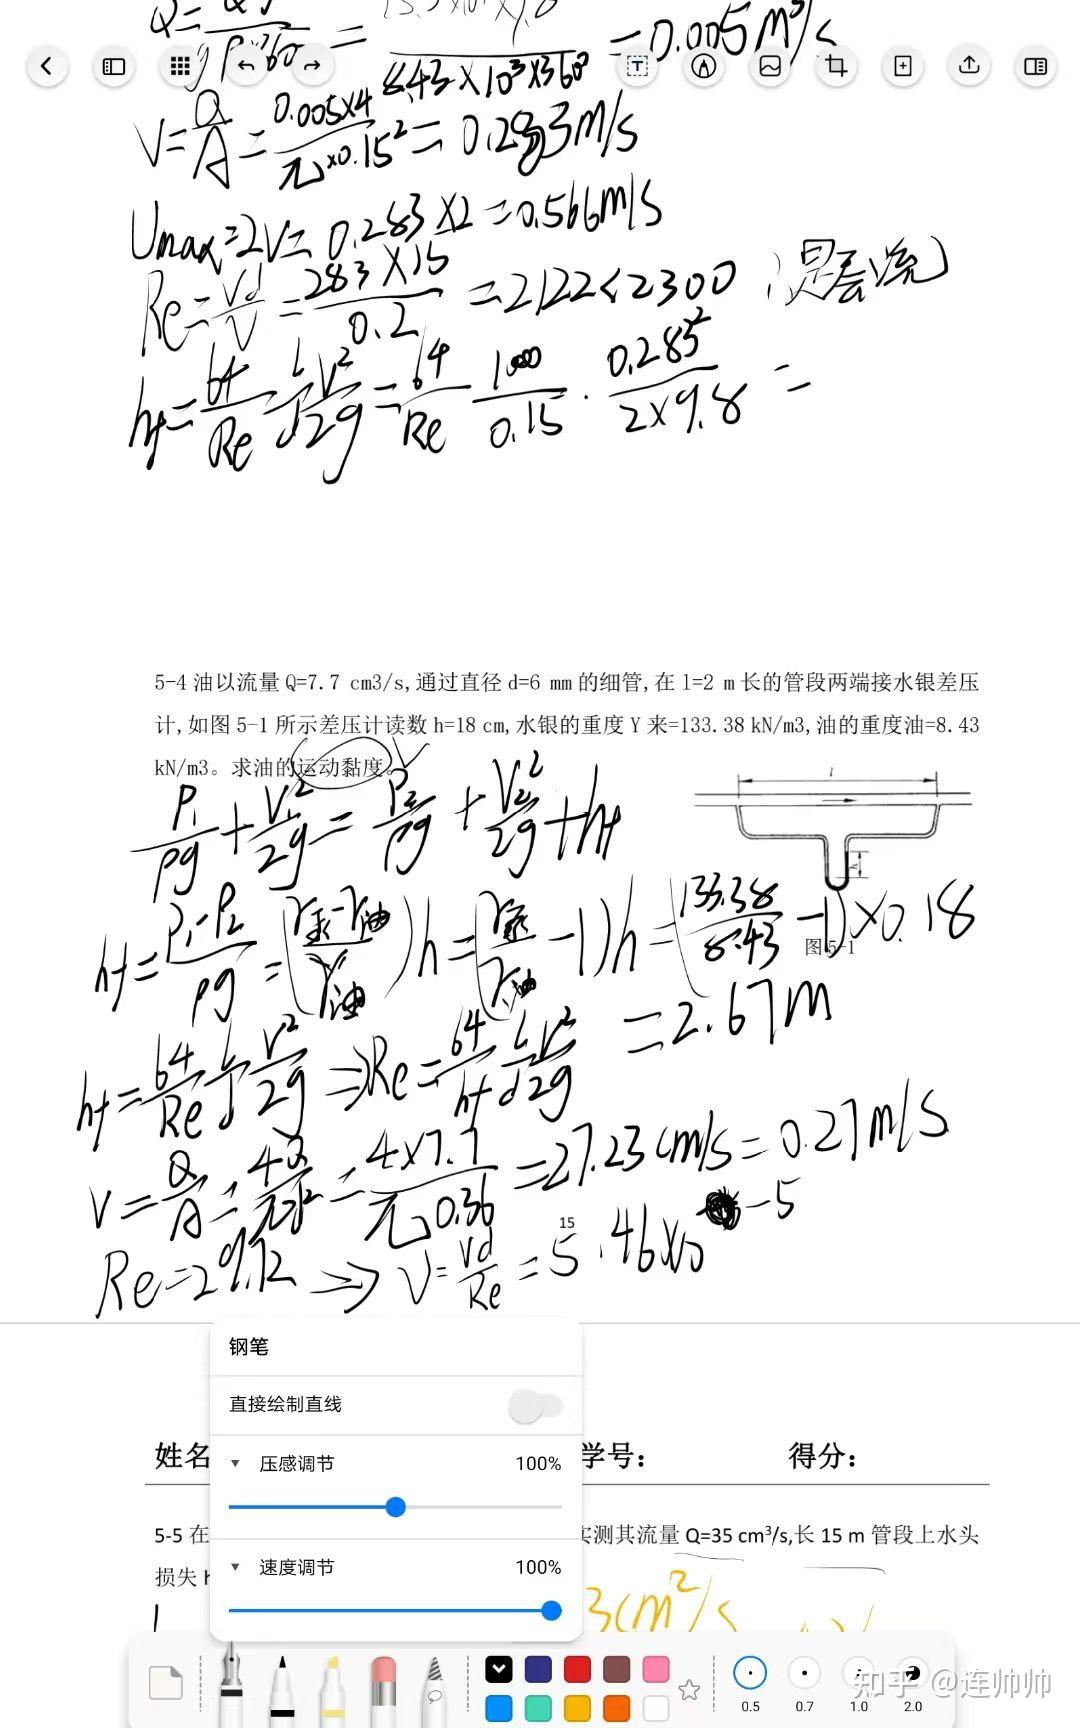 = 0.005 m³/s
8.43×10³×3600
V=Q/A=0.005×4/π×0.15²=0.283m/s
Umax=2V=0.283×2=0.566m/s
Re=Vd/ν=283×15/0.2=2122<2300 是层流
hf=64/Re l/d V²/2g=64/Re 1000/0.15·0.285²/2×9.8=
5-4 油以流量 Q=7.7 cm3/s,通过直径 d=6 mm 的细管,在 l=2 m 长的管段两端接水银差压
计,如图 5-1 所示差压计读数 h=18 cm,水银的重度 Y 来=133.38 kN/m3,油的重度油=8.43
kN/m3。求油的运动黏度。
l
P₁/ρg+V₁²/2g=P₂/ρg+V₂²/2g+hf
h
hf=P₁-P₂/ρg=(γ汞-γ油/γ油)h=(γ汞/γ油-1)h=(133.38/8.43-1)×0.18
图 5-1
=2.67m
hf=64/Re l/d V²/2g⇒Re=64/hf l/d V²/2g
V=Q/A=4Q/πd²=4×7.7/π0.36=27.23cm/s=0.27m/s
15
Re=29.72⇒ν=Vd/Re=5.46×10-5
钢笔
直接绘制直线
姓名 学号: 得分:
压感调节 100%
5-5 在 实测其流量 Q=35 cm³/s,长 15 m 管段上水头
速度调节 100%
损失 h
3cm²/s
0.5 0.7 1.0 2.0
知乎 @连帅帅